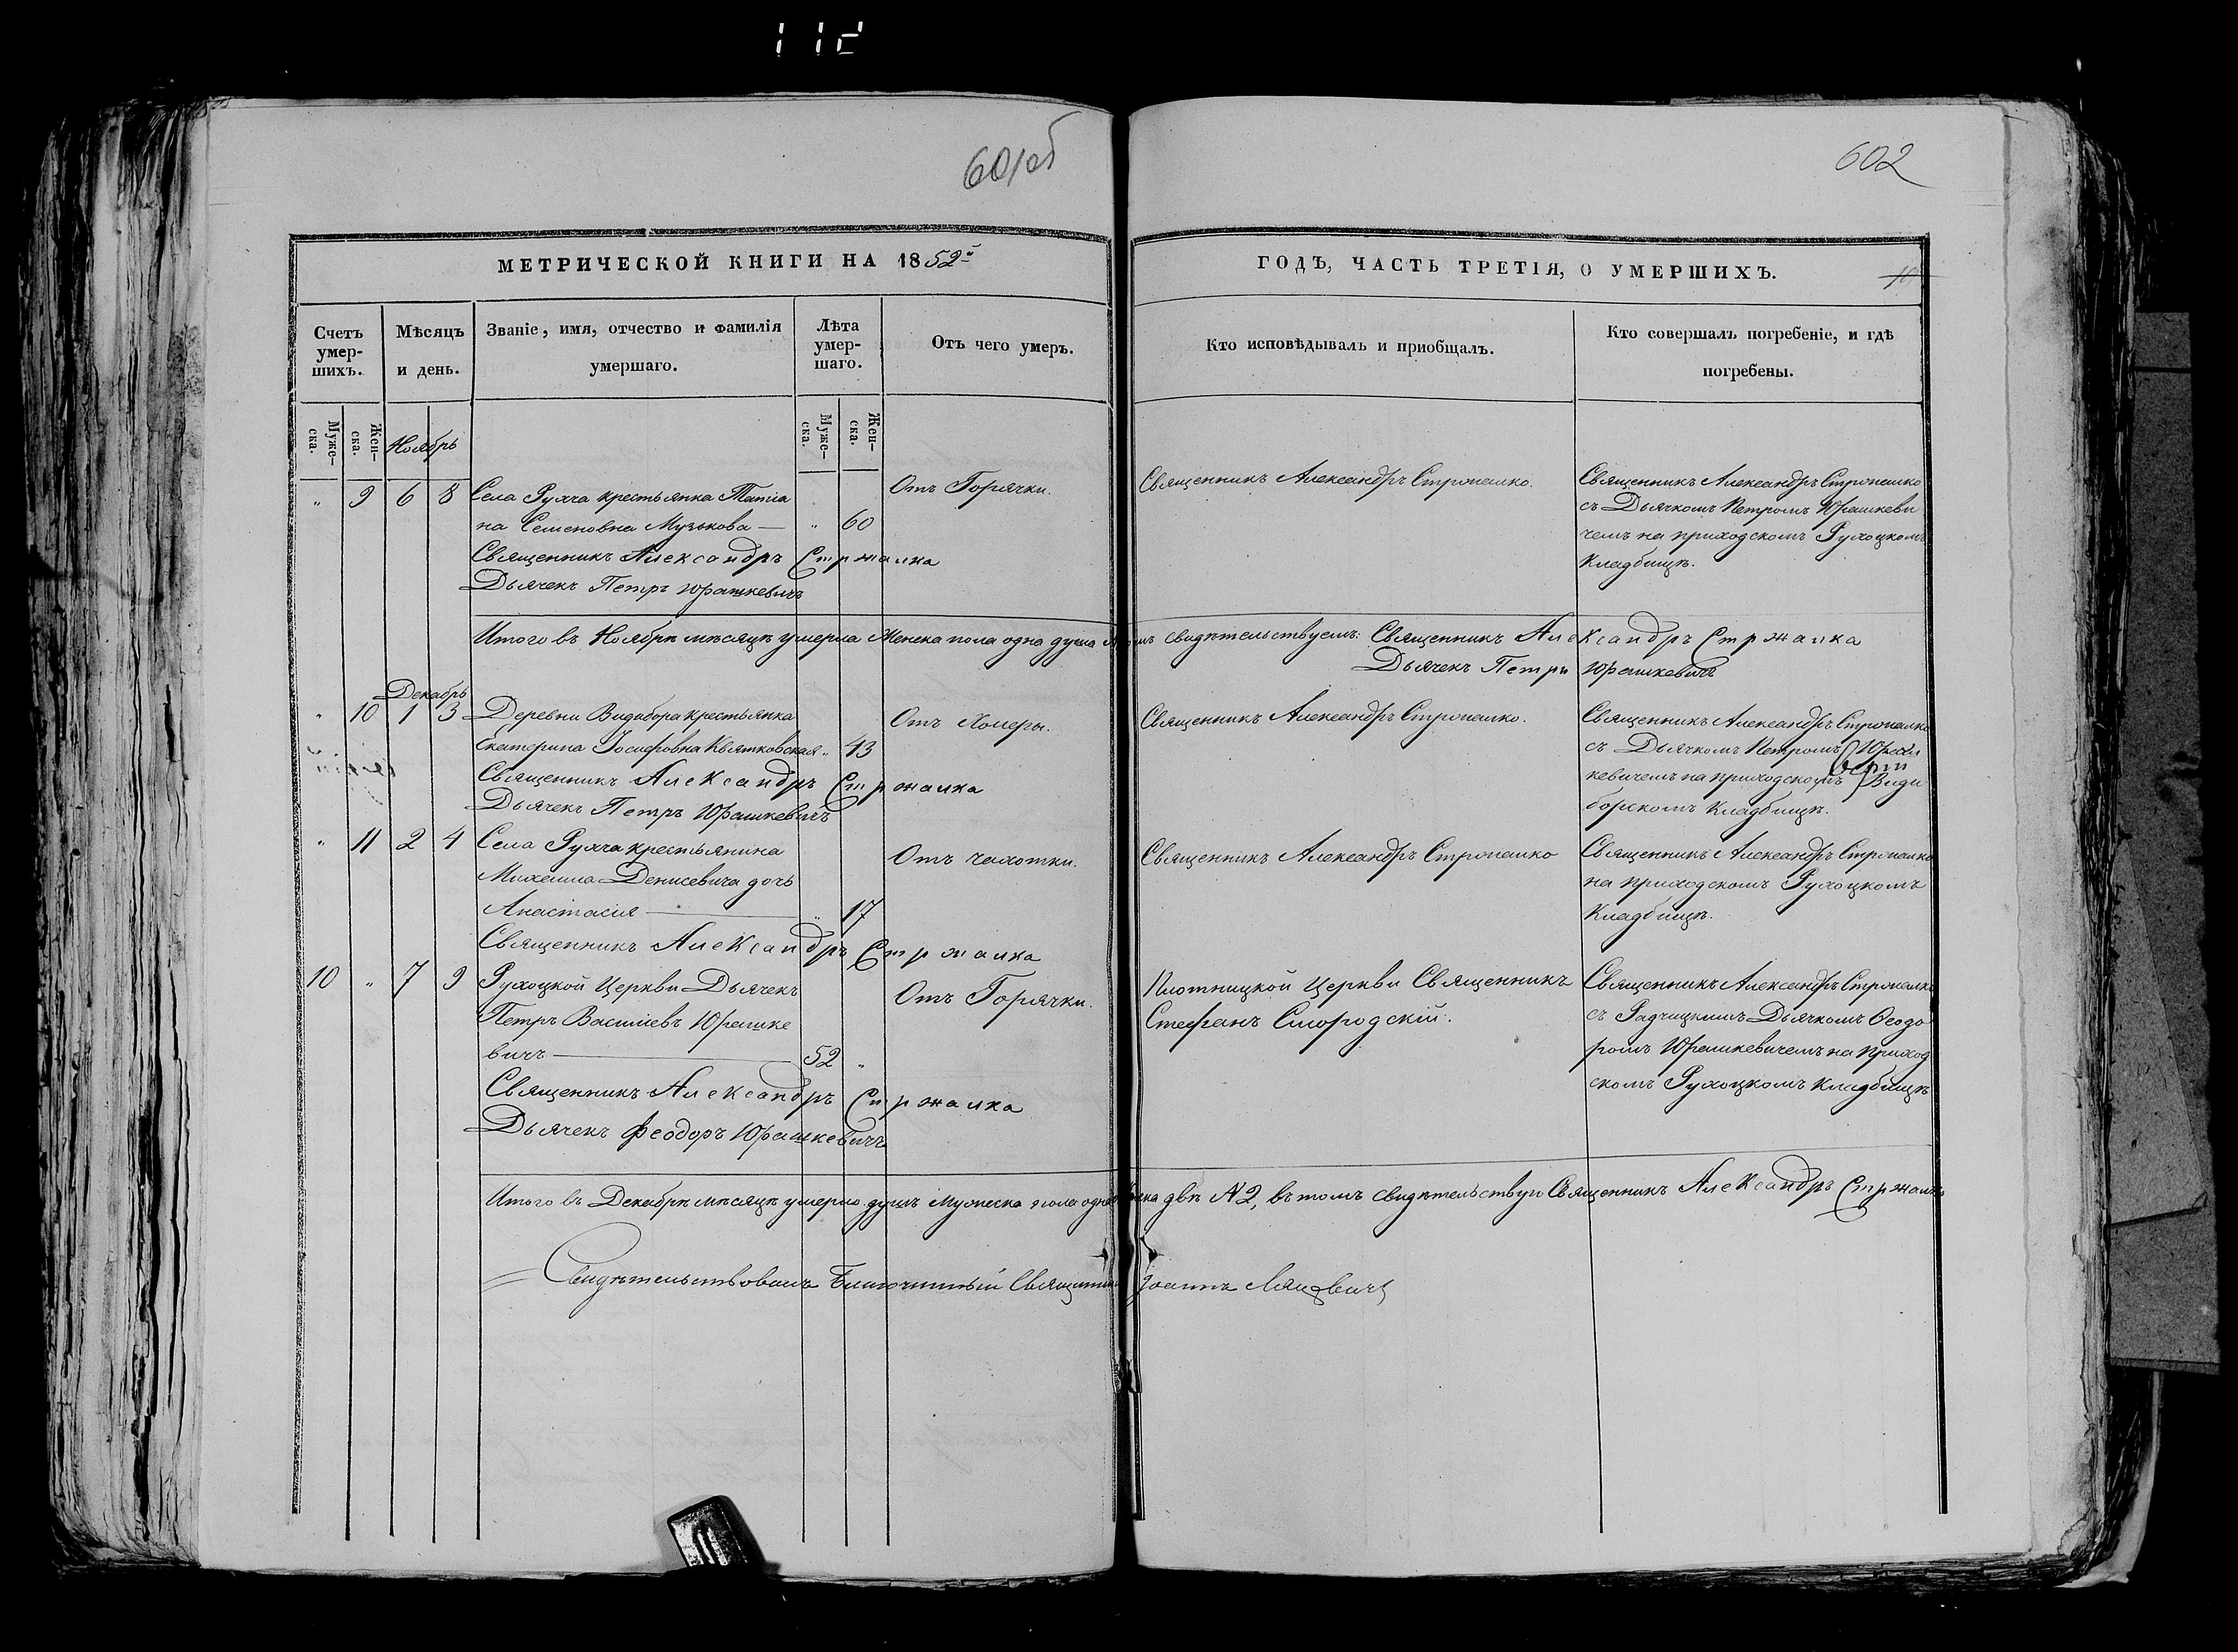 601об
602
МЕТРИЧЕСКОЙ КНИГИ НА 1852й
ГОДЪ, ЧАСТЬ ТРЕТІЯ, О УМЕРШИХЪ.
Счетъ умер-
шихъ.
Мѣсяцъ
и день.
Званіе, имя, отчество и фамилія
умершаго.
Лѣта
умер-
шаго.
Отъ чего умеръ.
Кто исповѣдывалъ и пріобщалъ.
Кто совершалъ погребеніе, и гдѣ
погребены.
Муже-
ска.
Жен-
ска.
Ноябрь
Муже-
ска.
Жен-
ска.
" 9 6 8 Села Рухча крестьянка Татіа
на Семеновна Музькова — " 60
Отъ Горячки.
Священникъ Александръ Стржалко.
Священникъ Александръ Стржалко
съ Дьячкомъ Петромъ Юрашкеви
чемъ на приходскомъ Рухоцкомъ
Кладбищѣ.
Священникъ Александръ Стржалка
Дьячекъ Петръ Юрашкевичъ
Итого въ Ноябрѣ мѣсяцѣ умерла Женска пола одна душа свидѣтельствуемъ: Священникъ Александръ Стржалка
Дьячекъ Петръ Юрашкевичъ
Декабрь
" 10 1 3 Деревни Видибора крестьянка
Екатерина Іосифовна Квятковская " 43
Отъ Холеры.
Священникъ Александръ Стржалко.
Священникъ Александръ Стржалко
съ Дьячкомъ Петромъ Юраш
кевичемъ на приходскомъ Види
борскомъ Кладбищѣ.
Священникъ Александръ Стржалка
Дьячекъ Петръ Юрашкевичъ
" 11 2 4 Села Рухча крестьянина
Михаила Денисевича дочь
Анастасія — " 17
Отъ чахотки.
Священникъ Александръ Стржалко
Священникъ Александръ Стржалко
на приходскомъ Рухоцкомъ
Кладбищѣ.
Священникъ Александръ Стржалка
10 " 7 9 Рухоцкой Церкви Дьячекъ
Петръ Васильевъ Юрашке
вичъ — 52 "
Отъ Горячки.
Плотницкой Церкви Священникъ
Стефанъ Смородскій.
Священникъ Александръ Стржалко
съ Радчицкимъ Дьячкомъ Ѳеодо
ромъ Юрашкевичемъ на приход
скомъ Рухоцкомъ кладбищѣ
Священникъ Александръ Стржалка
Дьячекъ Феодоръ Юрашкевичъ
Итого въ Декабрѣ мѣсяцѣ умерло душъ Мужеска пола одна двѣ №2, въ томъ свидѣтельствую Священникъ Александръ Стржалка
Свидѣтельствовалъ Благочинный Священникъ Іоаннъ